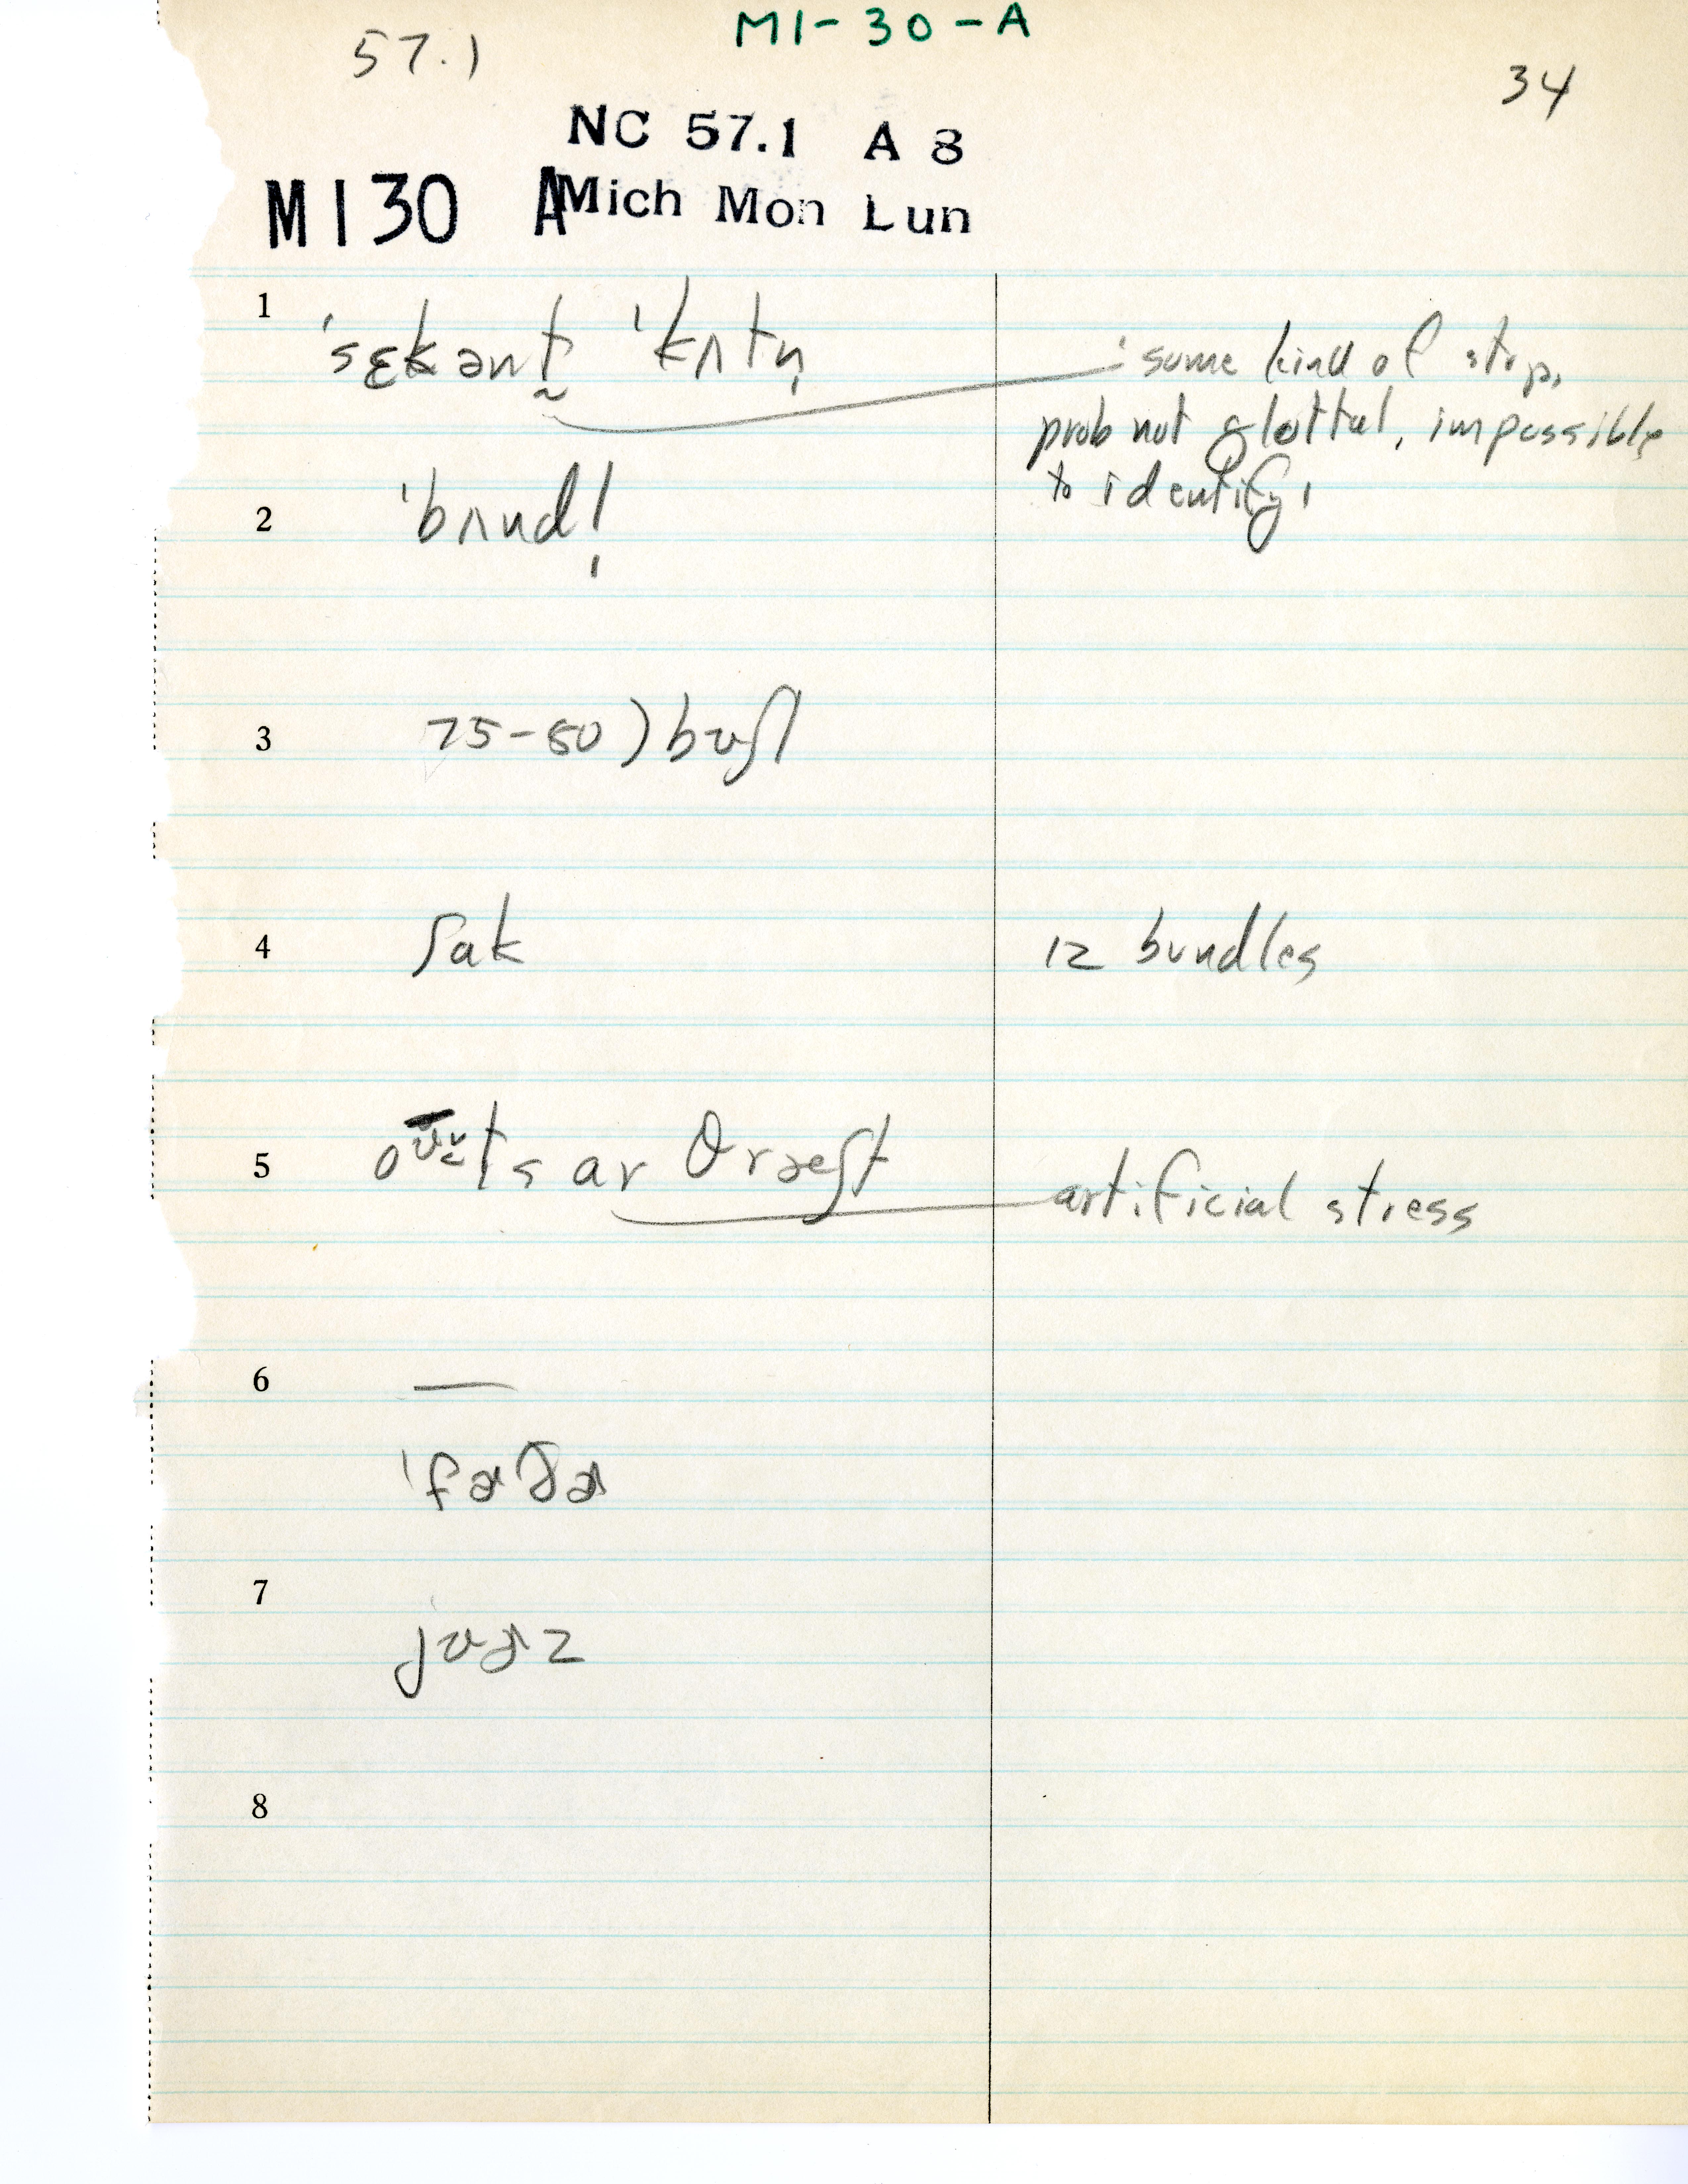 MI-30-A
57.1
34
NC 57.1 A 8
MI30 A Mich Mon Lun
1 ˈsɛkənt̰ ˈkʌtn̩ : some kind of stop,
prob not glottal, impossible
to identify,
2 ˈbʌndl̩
3 75-80) bʊʃl
4 ʃak 12 bundles
5 ots ar θræʃt artificial stress
6 —
ˈfɑðɚ
7 jʊɚz
8